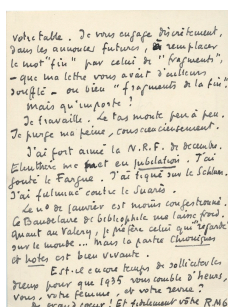 votre table. Je vous engage discrètement,
dans les annonces futures, à remplacer
le mot "fin" par celui de "fragments",
- que ma lettre vous avait d'ailleurs
soufflé - ou bien "fragments de la fin".
Mais qu'importe !
Je travaille. Le tas monte peu à peu.
Je purge ma peine, consciencieusement.
J'ai fort aimé la N.R.F. de décembre.
met en jubilation. J'ai
goûté le Fargue. J'ai tiqué sur le Schlum.
J'ai fulminé contre le Suarès.
Le no de Janvier est moins confessionné.
Le Baudelaire de bibliophile me laisse froid.
Quant au Valéry, je préfère celui qui "regarde"
sur le monde ... Mais la partie Chroniques
et notes est bien vivante.
Est-ce encore temps de solliciter les
dieux pour que 1935 vous comble d'heurs,
vous, votre femme, et votre revue ?
De grand coeur ! Et fidèlement vôtre R.M.G